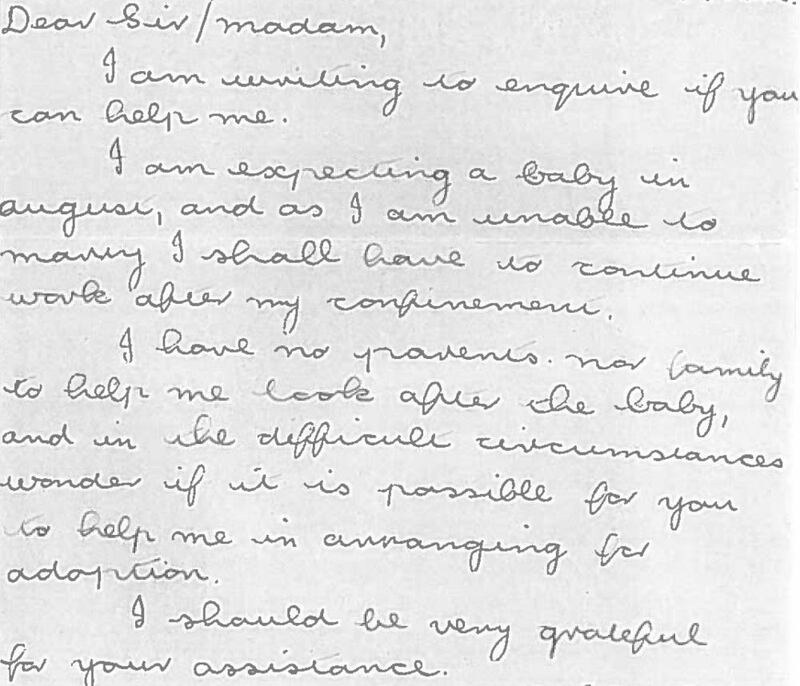 Dear Sir/madam,
I am writing to enquire if you
can help me.
I am expecting a baby in
august, and as I am unable to
marry I shall have to continue
work after my confinement.
I have no parents. nor family
to help me look after the baby,
and in the difficult circumstances
wonder if it is possible for you
to help me in arranging for
adoption.
I should be very grateful
for your assistance.